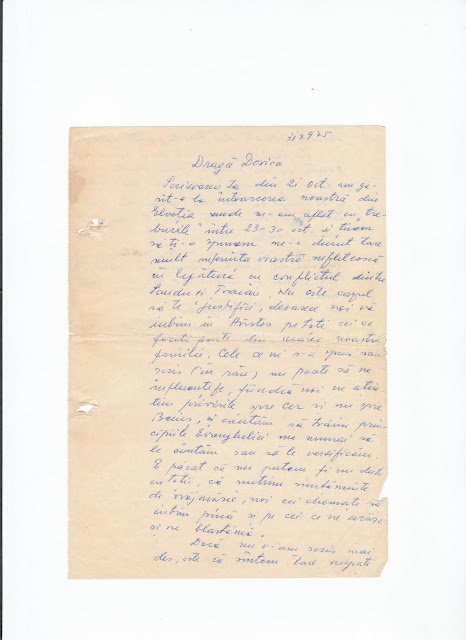 31 X 975
Dragă Dorica
Scrisoarea ta din 21 oct. am gă-
sit-o la întoarcerea noastră din
Elveția unde ne-am aflat cu "tre-
burile" între 23-30 oct. și țineam
să ți-o spunem ne-a durut tare
mult suferința voastră sufletească
în legătură cu conflictul dintre
Sandu și Traian. Nu este cazul
să te "justifici", deoarece noi vă
iubim în Hristos pe toți cei ce
faceți parte din marea noastră
familie. Cele ce ni s-a spus sau
scris (în rău) nu poate să ne
influențeze, fiindcă noi ne ațin-
tim privirile spre cer și nu spre
și căutăm să trăim prin-
cipiile Evangheliei nu numai să
le cântăm sau să le versificăm.
E păcat să nu putem fi un duh
cu toții, că nutrim simțăminte
de vrăjmășie, noi cei chemați să
iubim până și pe cei ce ne urăsc
și ne blastămă.
Dacă nu v-am scris mai
des, este că sîntem tare ocupați